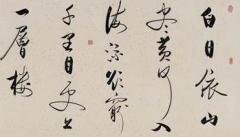 白日依山
盡黃河入
海流欲窮
千里目更上
一層樓